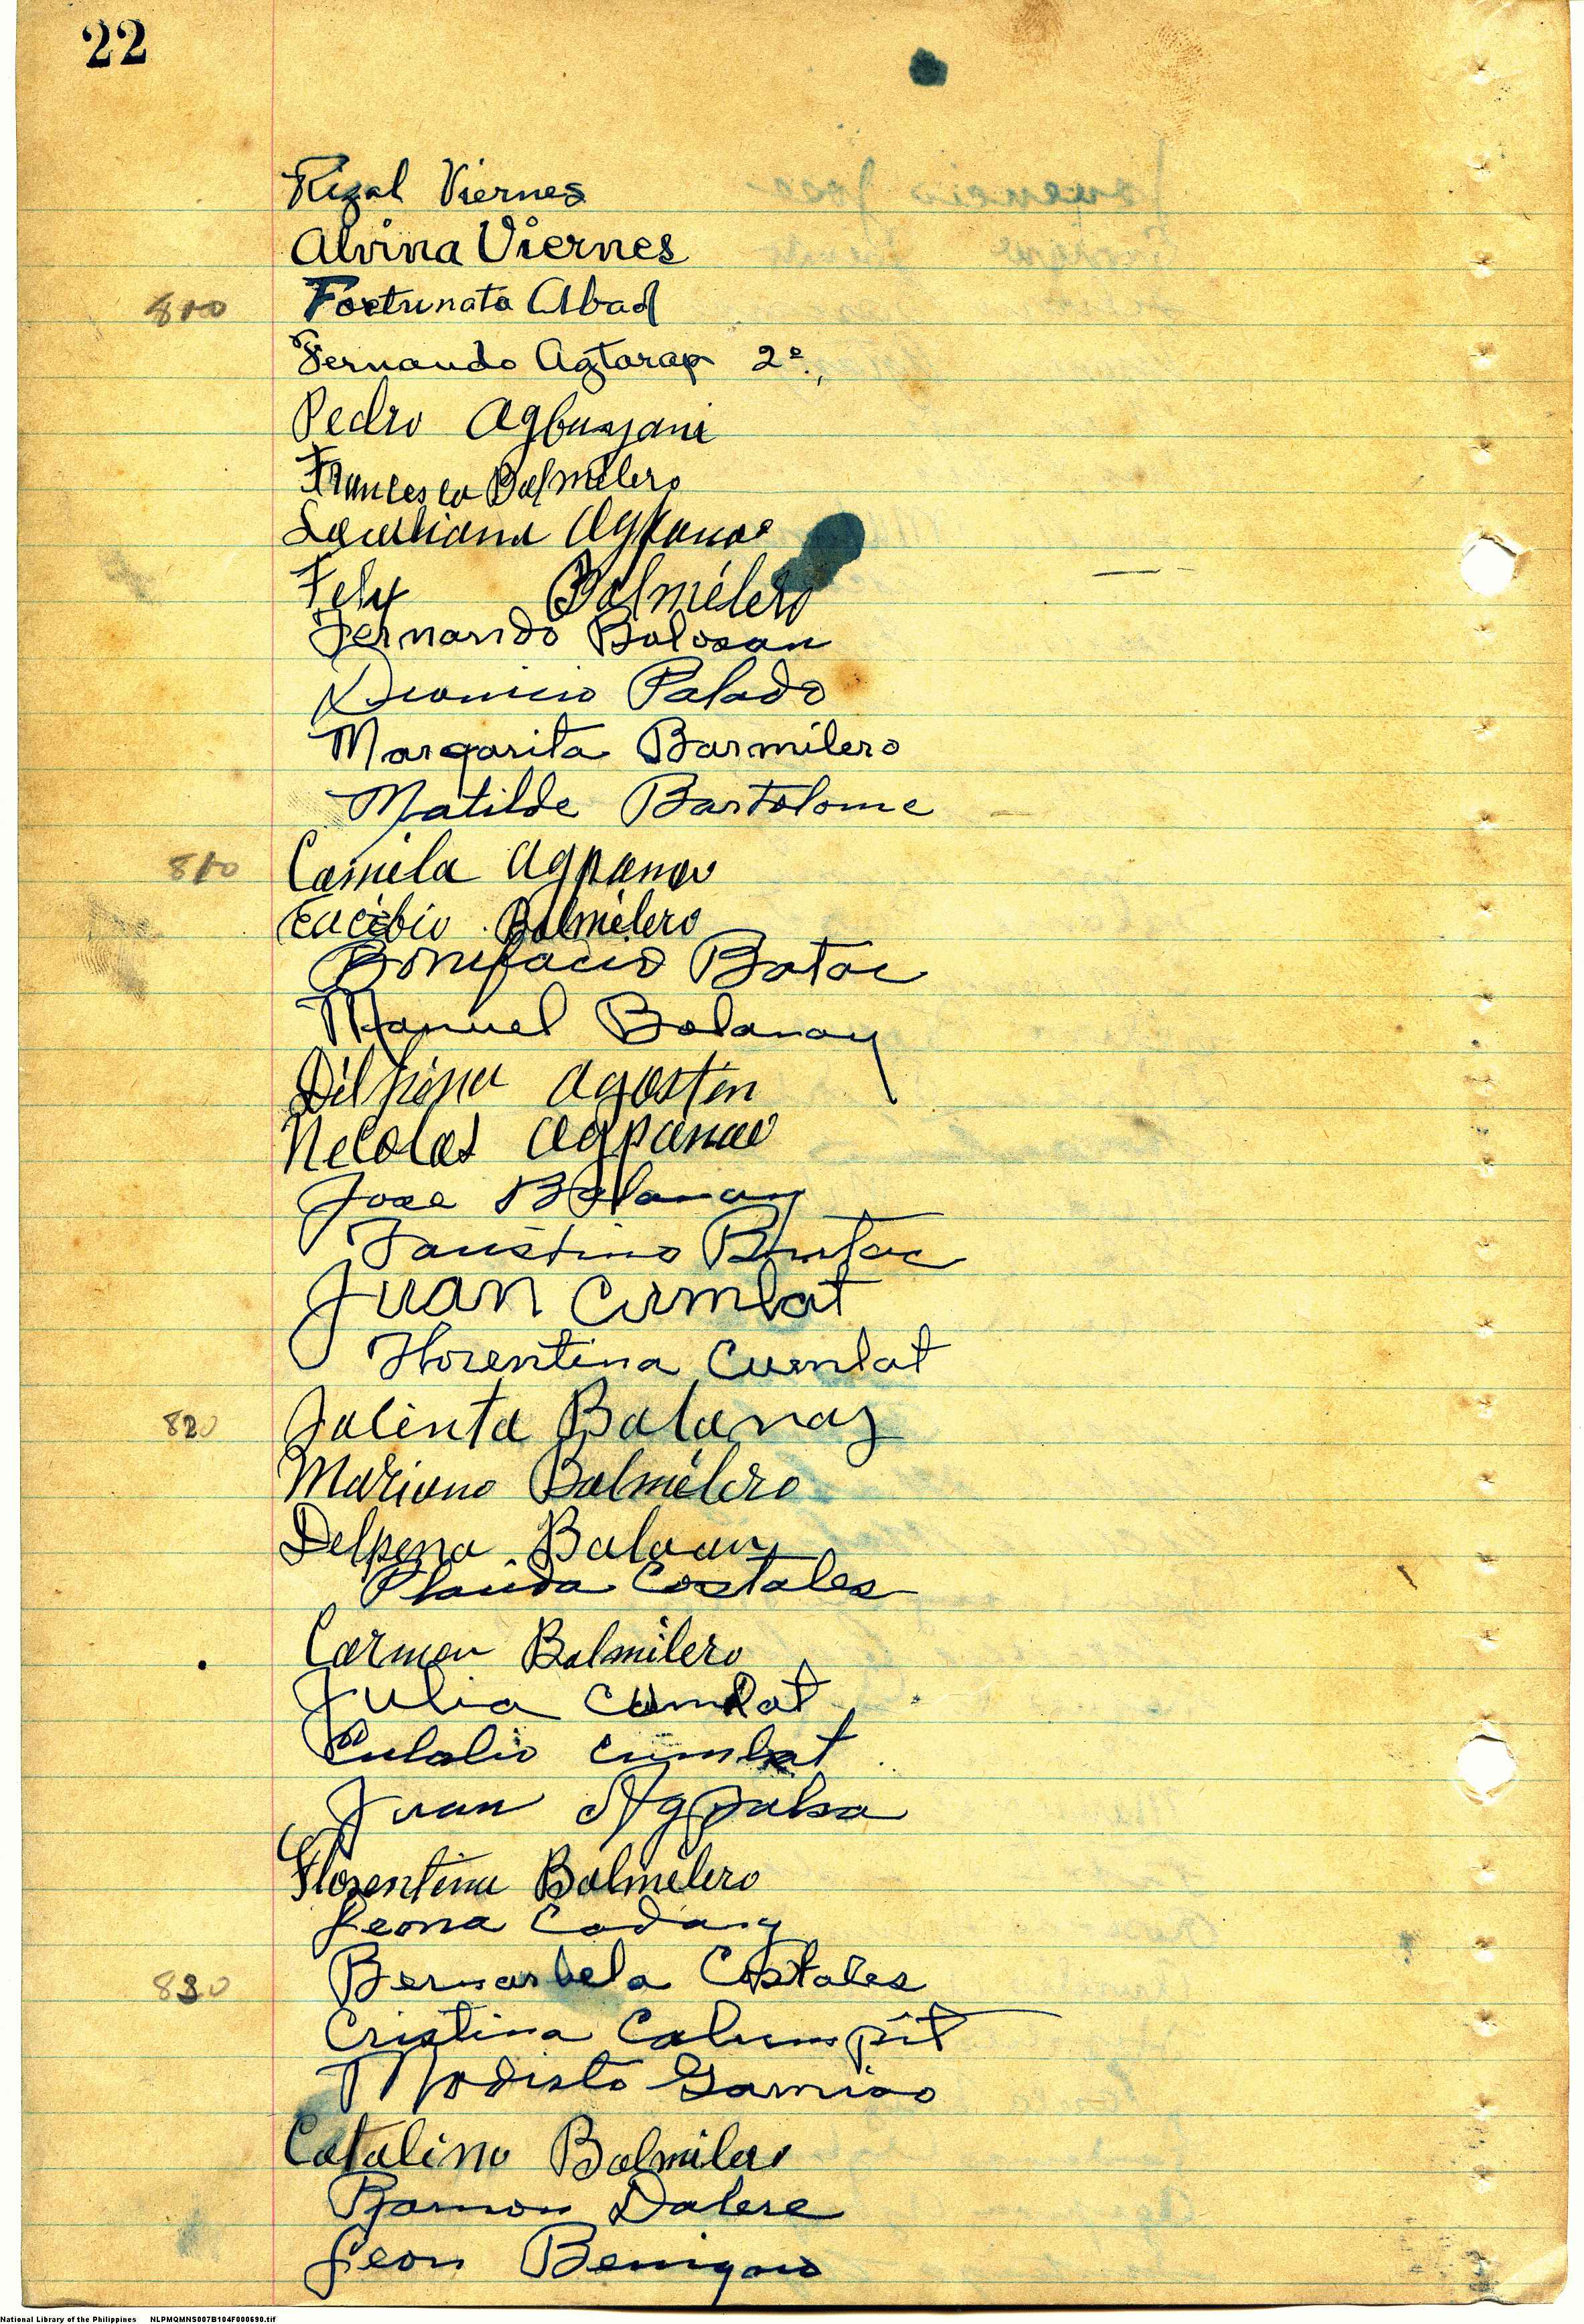 22
Rizal Viernes
Alvina Viernes
800 Fortunato Abad
Fernando Agtarap 2º.,
Pedro Agbunyani
Francesca Balmilero
Agpanao
Felix Balmélero
Fernando Balosan
Dionicio Palado
Margarita Barmilero
Matilde Bartolome
810 Camila Agpanao
Eucébio Balmélero
Bonifacio Batac
Manuel Balanay
Dilpina Agostin
Necolas Agpanao
Jose Balanay
Faustino Butac
Juan Cumlat
Florentina Cumlat
820 Jacinta Balanay
Mariano Balmélero
Delpena Balaan
Plasida Costales
Carmen Balmilero
Julia Cumlat
Eulalio Cumlat
Juan Agpalsa
Florentina Balmelero
Leona Cadang
830 Bernarbela Costales
Cristina Calumpit
Modisto Gamiao
Catalino Balmilero
Ramon Dalere
Leon Benigno
National Library of the Philippines NLPMQMNS007B104F000690.tif